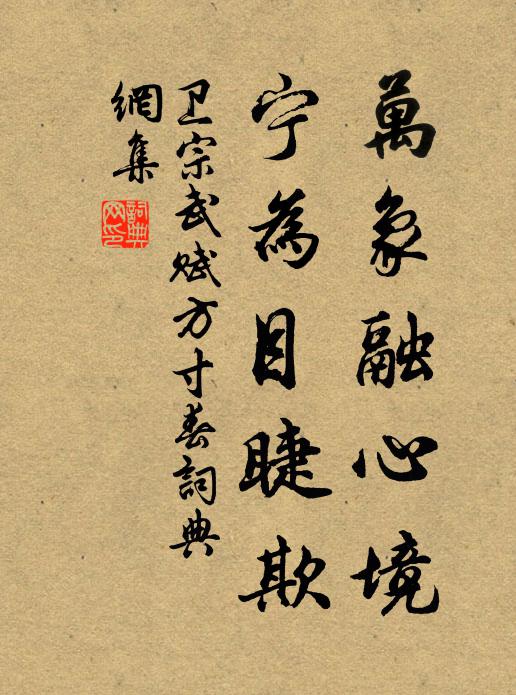 萬象融心境
宁為目睫欺
卫宗武赋方寸春詞典
網集
詞典网印